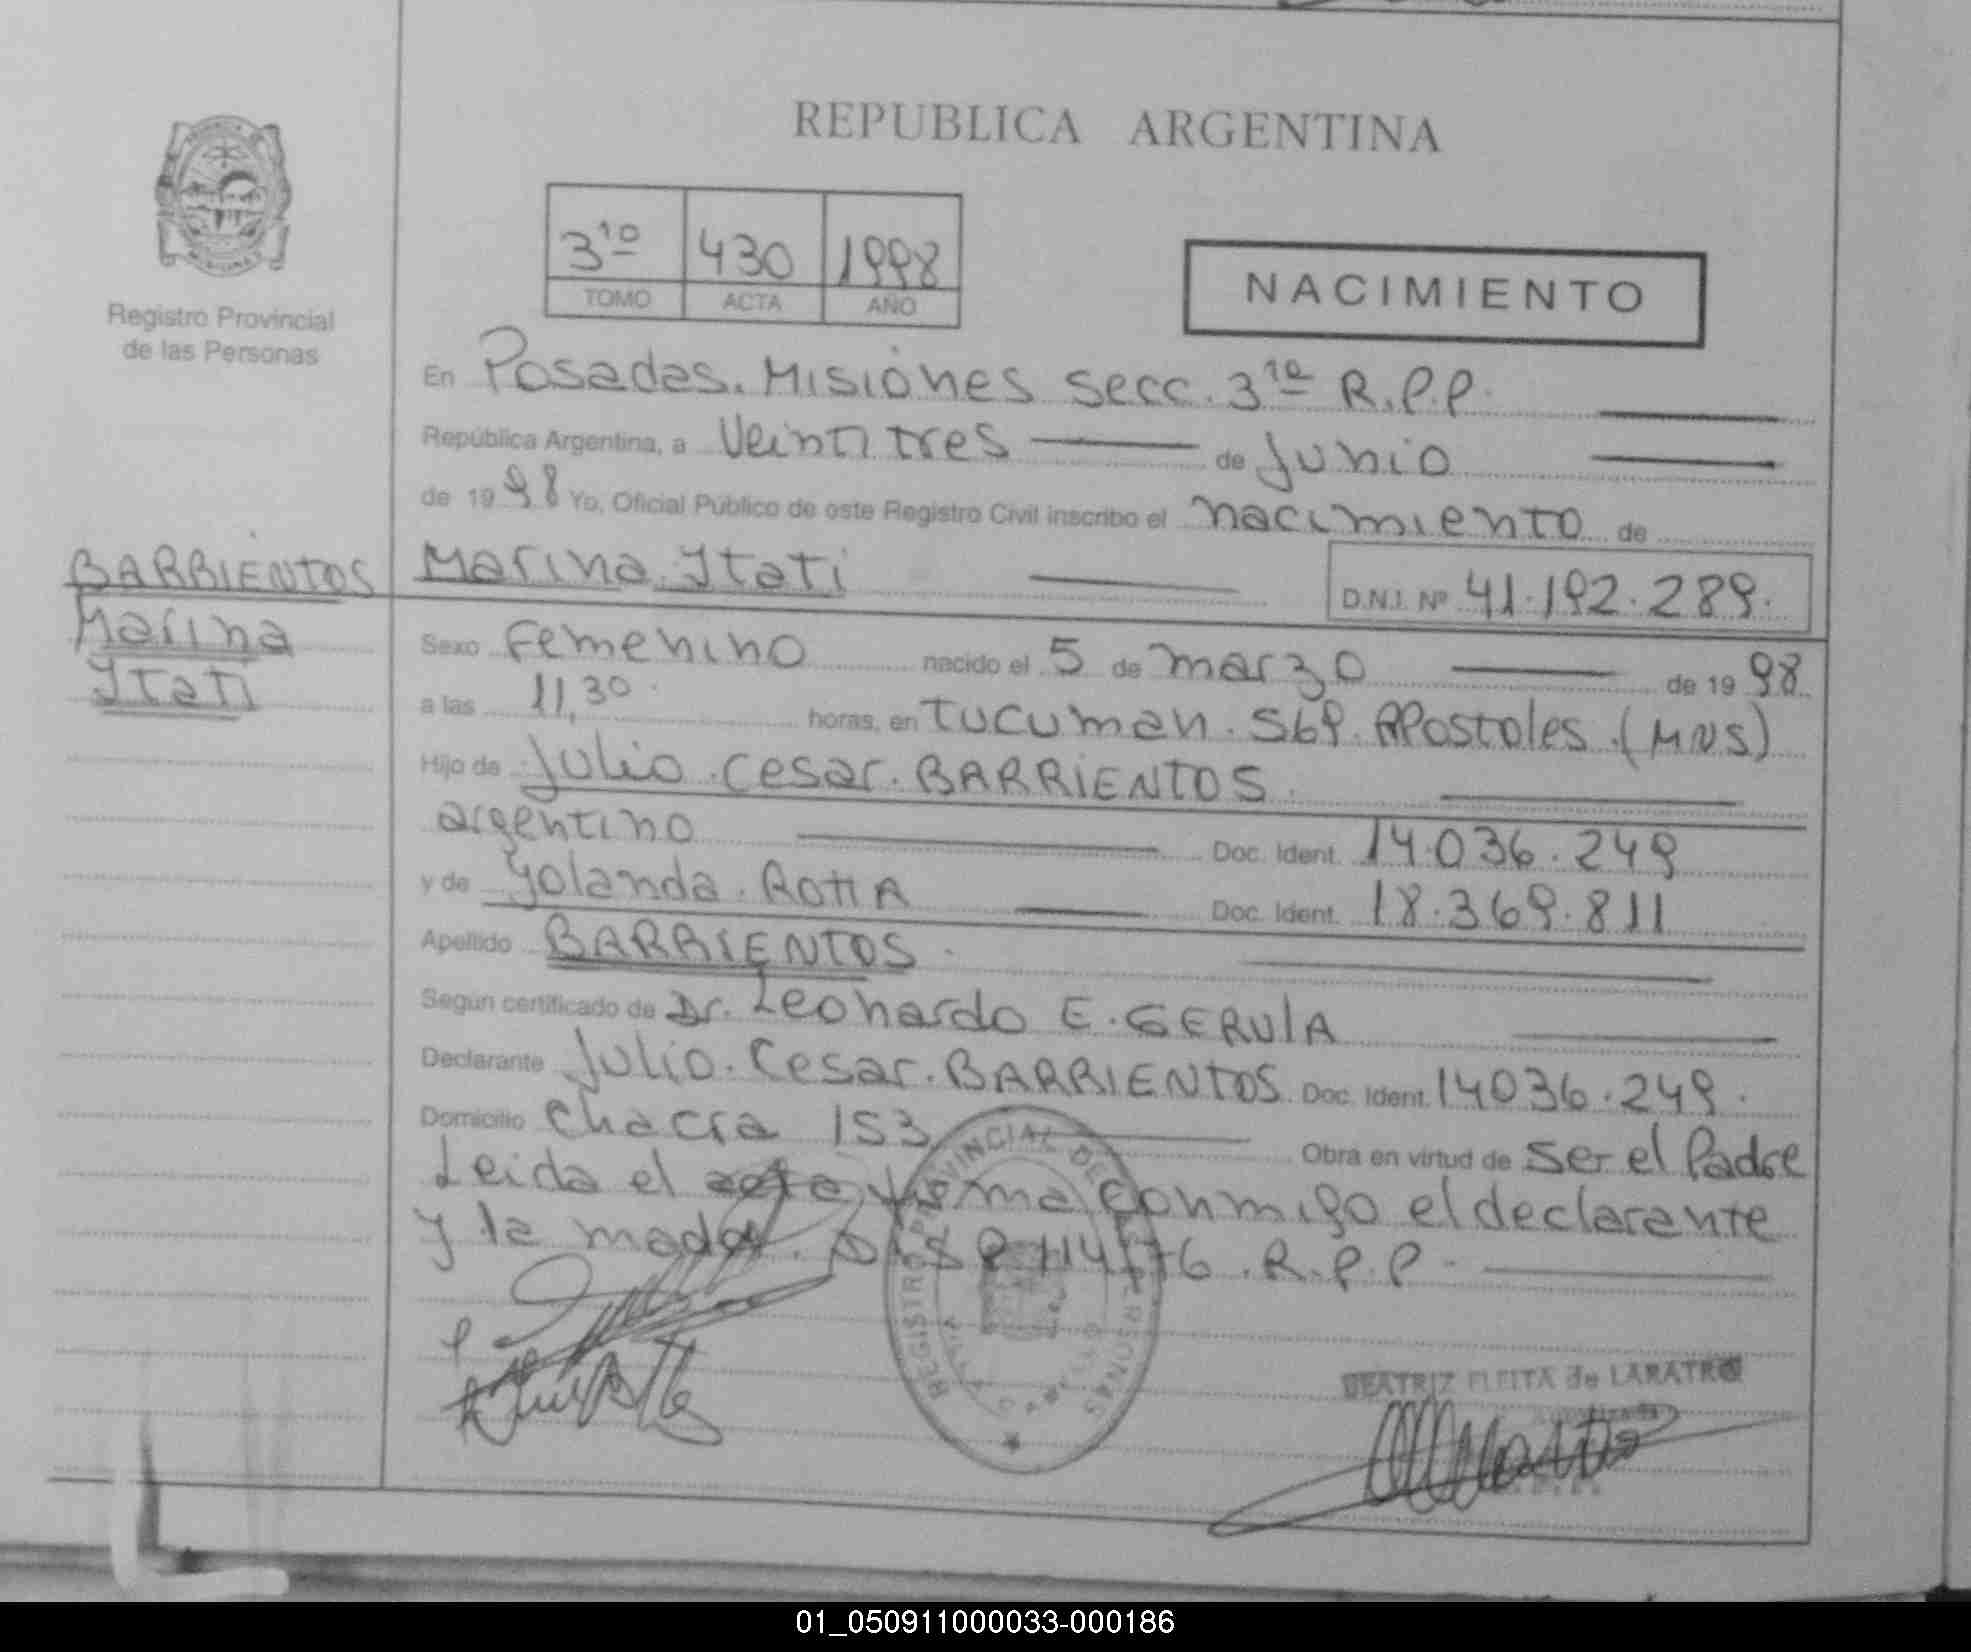 REPUBLICA ARGENTINA
MISIONES
Registro Provincial
de las Personas
3ro 430 1998
TOMO ACTA AÑO
NACIMIENTO
En Posadas. Misiones secc. 3ra R.P.P.
República Argentina, a Veintitres de Junio
de 1998 Yo, Oficial Público de este Registro Civil inscribo el nacimiento de
BARRIENTOS
Marina
Itati
Marina Itati D.N.I. Nº 41.192.289.
Sexo Femenino nacido el 5 de marzo de 1998
a las 11,30 horas, en Tucuman. 569. Apostoles. (MNS)
Hijo de Julio Cesar. BARRIENTOS
argentino Doc. Ident. 14.036.249
y de Yolanda. ROTTA Doc. Ident. 18.369.811
Apellido BARRIENTOS.
Según certificado de Dr. Leonardo E. GERULA
Declarante Julio. Cesar. BARRIENTOS Doc. Ident. 14036.249.
Domicilio Chacra 153 Obra en virtud de ser el Padre
Leida el acta firma conmigo el declarante
y la madre. 114/76. R.P.P.
REGISTRO PROVINCIAL DE PERSONAS
BEATRIZ FLEITA de LARATRO
01_050911000033-000186